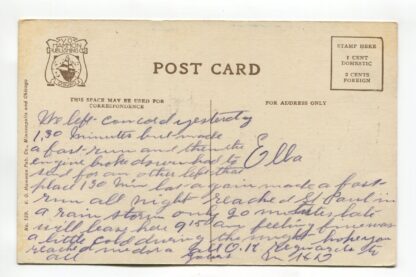 V.O. HAMMON
PUBLISHING CO.
CHICAGO
POST CARD
STAMP HERE
1 CENT
DOMESTIC
2 CENTS
FOREIGN
THIS SPACE MAY BE USED FOR
CORRESPONDENCE
FOR ADDRESS ONLY
No. 129. V. O. Hammon Pub. Co., Minneapolis and Chicago
We left concord yesterday
1,30 minutes but made
a fast run and then the
engine broke down had to
send for an other left that
place 130 min late again made a fast
run all night reached St Paul in
a rain storm only 20 minutes late
will leave here 9150 am feeling fine was
a little cold during the night hope you
reached medora O.K. Regards to
all yours
Ella